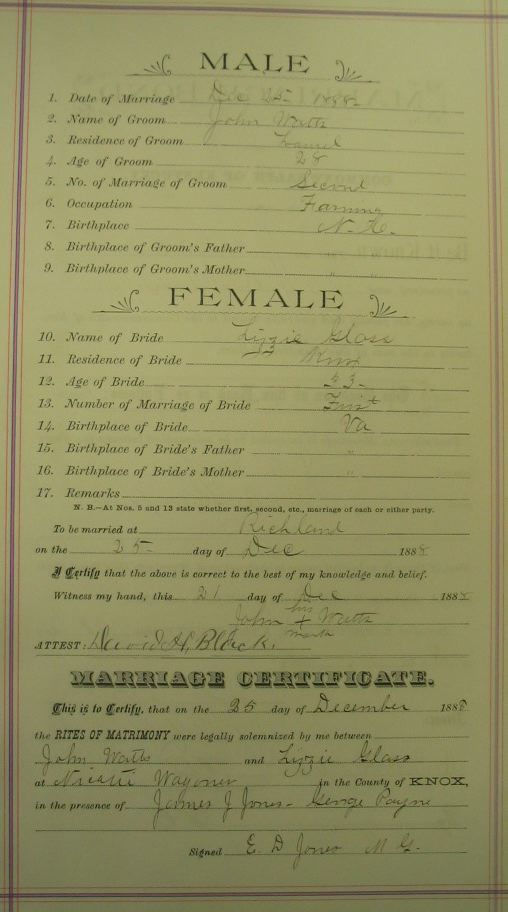 MALE
1. Date of Marriage Dec 25 1888
2. Name of Groom John Watts
3. Residence of Groom Laurel
4. Age of Groom 28
5. No. of Marriage of Groom Second
6. Occupation Farming
7. Birthplace N. C.
8. Birthplace of Groom's Father " "
9. Birthplace of Groom's Mother " "
FEMALE
10. Name of Bride Lizzie Glass
11. Residence of Bride Knox
12. Age of Bride
13. Number of Marriage of Bride First
14. Birthplace of Bride Va
15. Birthplace of Bride's Father "
16. Birthplace of Bride's Mother "
17. Remarks
N. B.—At Nos. 5 and 13 state whether first, second, etc., marriage of each or either party.
To be married at Richland
on the 25 day of Dec 1888
I Certify that the above is correct to the best of my knowledge and belief.
Witness my hand, this 21 day of Dec 1888
his
John + Watts
mark
ATTEST: David H. Black.
MARRIAGE CERTIFICATE.
This is to Certify, that on the 25 day of December 1888
the RITES OF MATRIMONY were legally solemnized by me between
John Watts and Lizzie Glass
at Wagoner in the County of KNOX,
in the presence of James J Jones - George Payne
Signed E. D Jones M G.